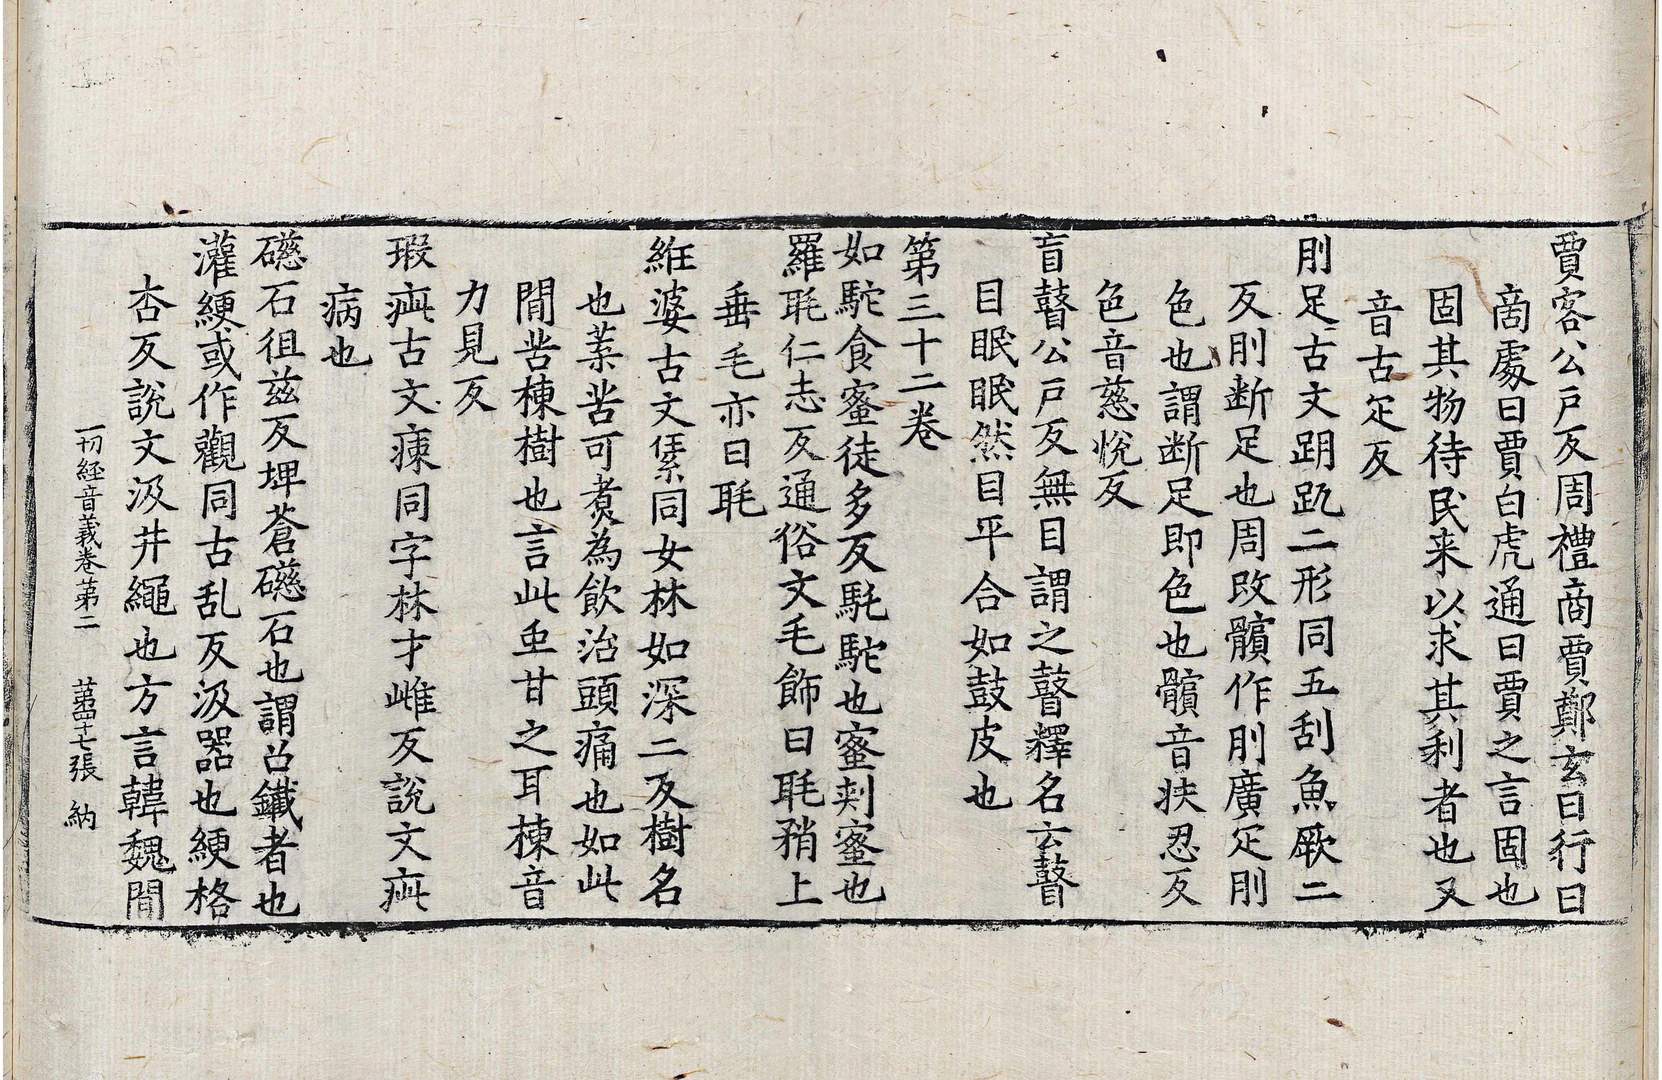 賈客公戶反周禮商賈鄭玄曰行曰
啇處曰賈白虎通曰賈之言固也
固其物待民来以求其利者也又
音古疋反
刖足古文䠵趴二形同五刮魚厥二
反刖断足也周改髕作刖廣疋刖
色也謂断足即色也髕音扶忍反
色音慈悅反
盲瞽公戶反無目謂之瞽釋名云瞽
目眠眠然目平合如鼓皮也
第三十二卷
如駝食蜜徒多反馲駝也蜜刾蜜也
羅毦仁志反通俗文毛飾曰毦矟上
垂毛亦曰毦
絍婆古文𦁐同女林如深二反樹名
也葉苦可煑為飲治頭痛也如此
閒苦楝樹也言此虫甘之耳楝音
力見反
瑕疵古文㾊同字林才雌反說文疵
病也
礠石徂兹反埤蒼礠石也謂召鐵者也
灌綆或作觀同古乱反汲器也綆格
杏反說文汲井繩也方言韓魏閒
一切經音義卷第二　第四十七張　納